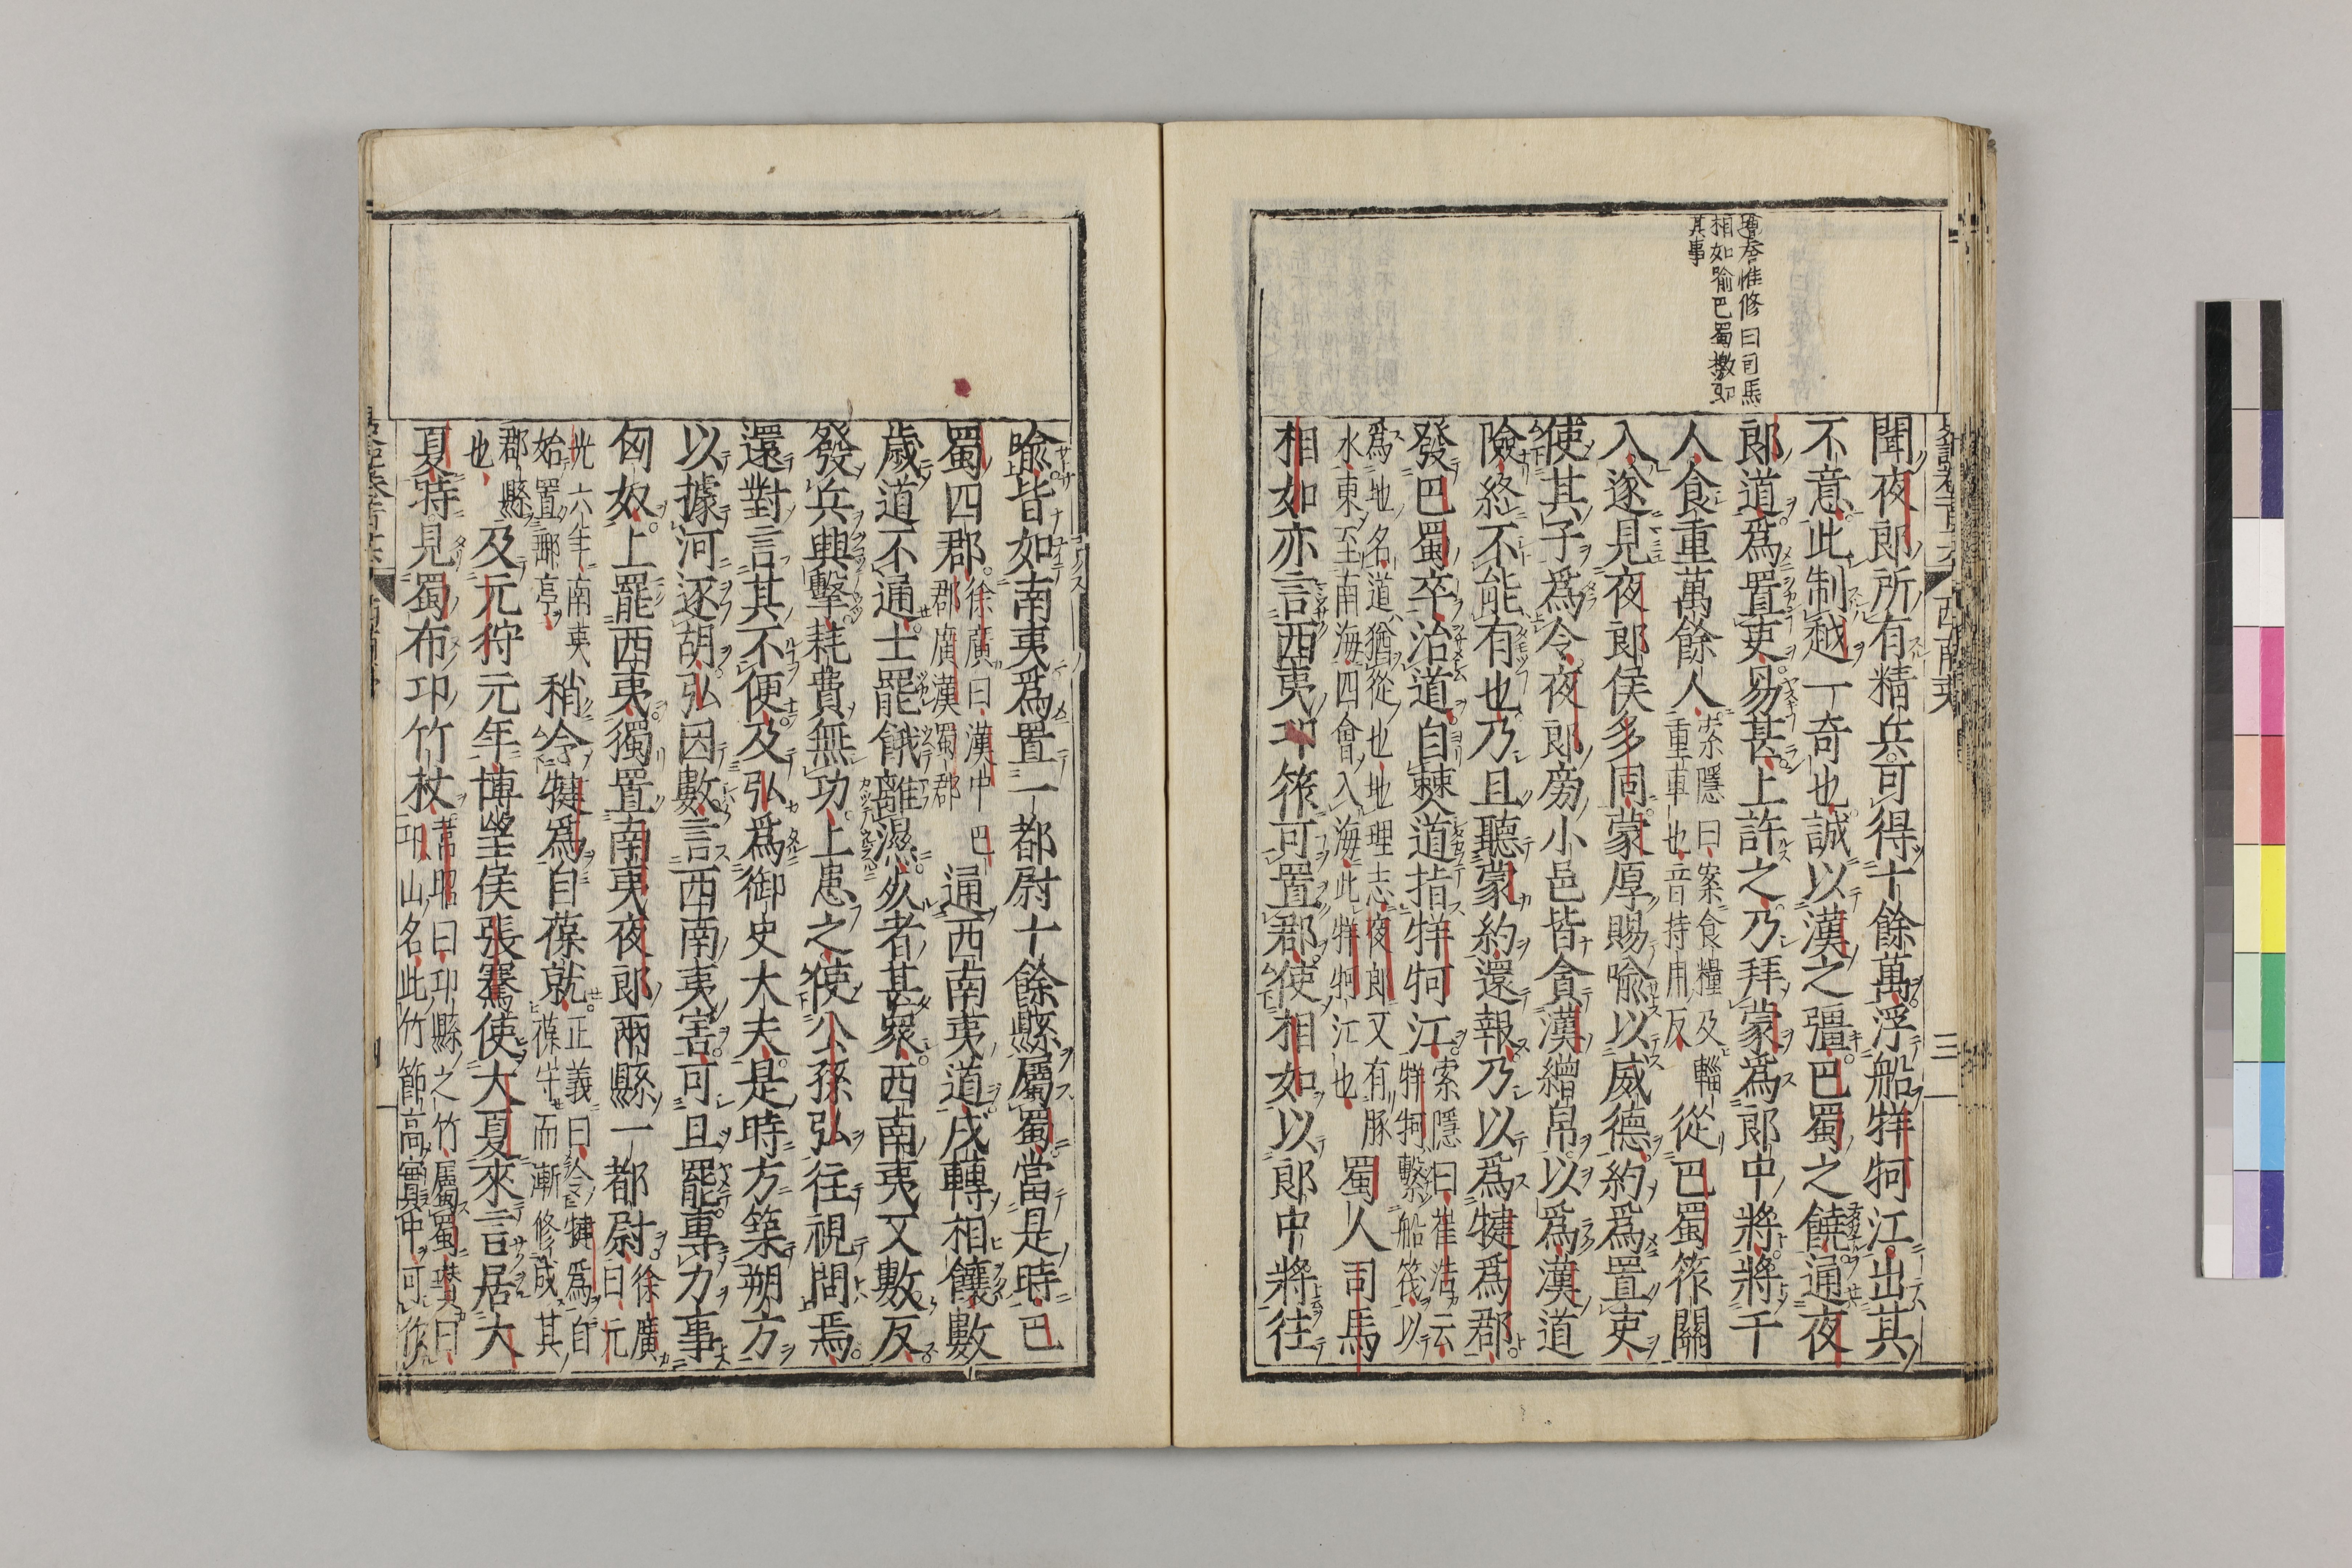 董份惟修曰司馬
相如喻巴蜀檄如
其事
聞夜郎所有精兵可得十餘萬浮船牂牁江出其
不意此制越一奇也誠以漢之彊巴蜀之饒通夜
郎道爲置吏易甚上許之乃拜蒙爲郎中將將千
人食重萬餘人
索隱曰案食糧及輜
重車也音持用反
從巴蜀筰關
入遂見夜郎侯多同蒙厚賜喻以威德約爲置吏
使其子爲令夜郎旁小邑皆貪漢繒帛以爲漢道
險終不能有也乃且聽蒙約還報乃以爲犍爲郡
發巴蜀卒治道自僰道指牂牁江
索隱曰崔浩云
牂牁繫船筏以
爲地名道猶從也地理志夜郎又有豚
水東至南海四會入海此牂牁江也
蜀人司馬
相如亦言西夷卭筰可置郡使相如以郎中將往
西南夷
三
喻皆如南夷爲置一都尉十餘縣屬蜀當是時巴
蜀四郡
徐廣曰漢中巴
郡廣漢蜀郡
通西南夷道戍轉相饟數
歲道不通士罷餓離濕死者甚衆西南夷又數反
發兵興擊耗費無功上患之使公孫弘往視問焉
還對言其不便及弘爲御史大夫是時方築朔方
以據河逐胡弘因數言西南夷害可且罷專力事
匈奴上罷西夷獨置南夷夜郎兩縣一都尉
徐廣
曰元
光六年南夷
始置郵亭
稍令犍爲自葆就
正義曰令犍爲自
葆守而漸修成其
郡縣
也
及元狩元年博望侯張騫使大夏來言居大
夏時見蜀布卭竹杖
韋昭曰卭縣之竹屬蜀瓚曰
卭山名此竹節高實中可作